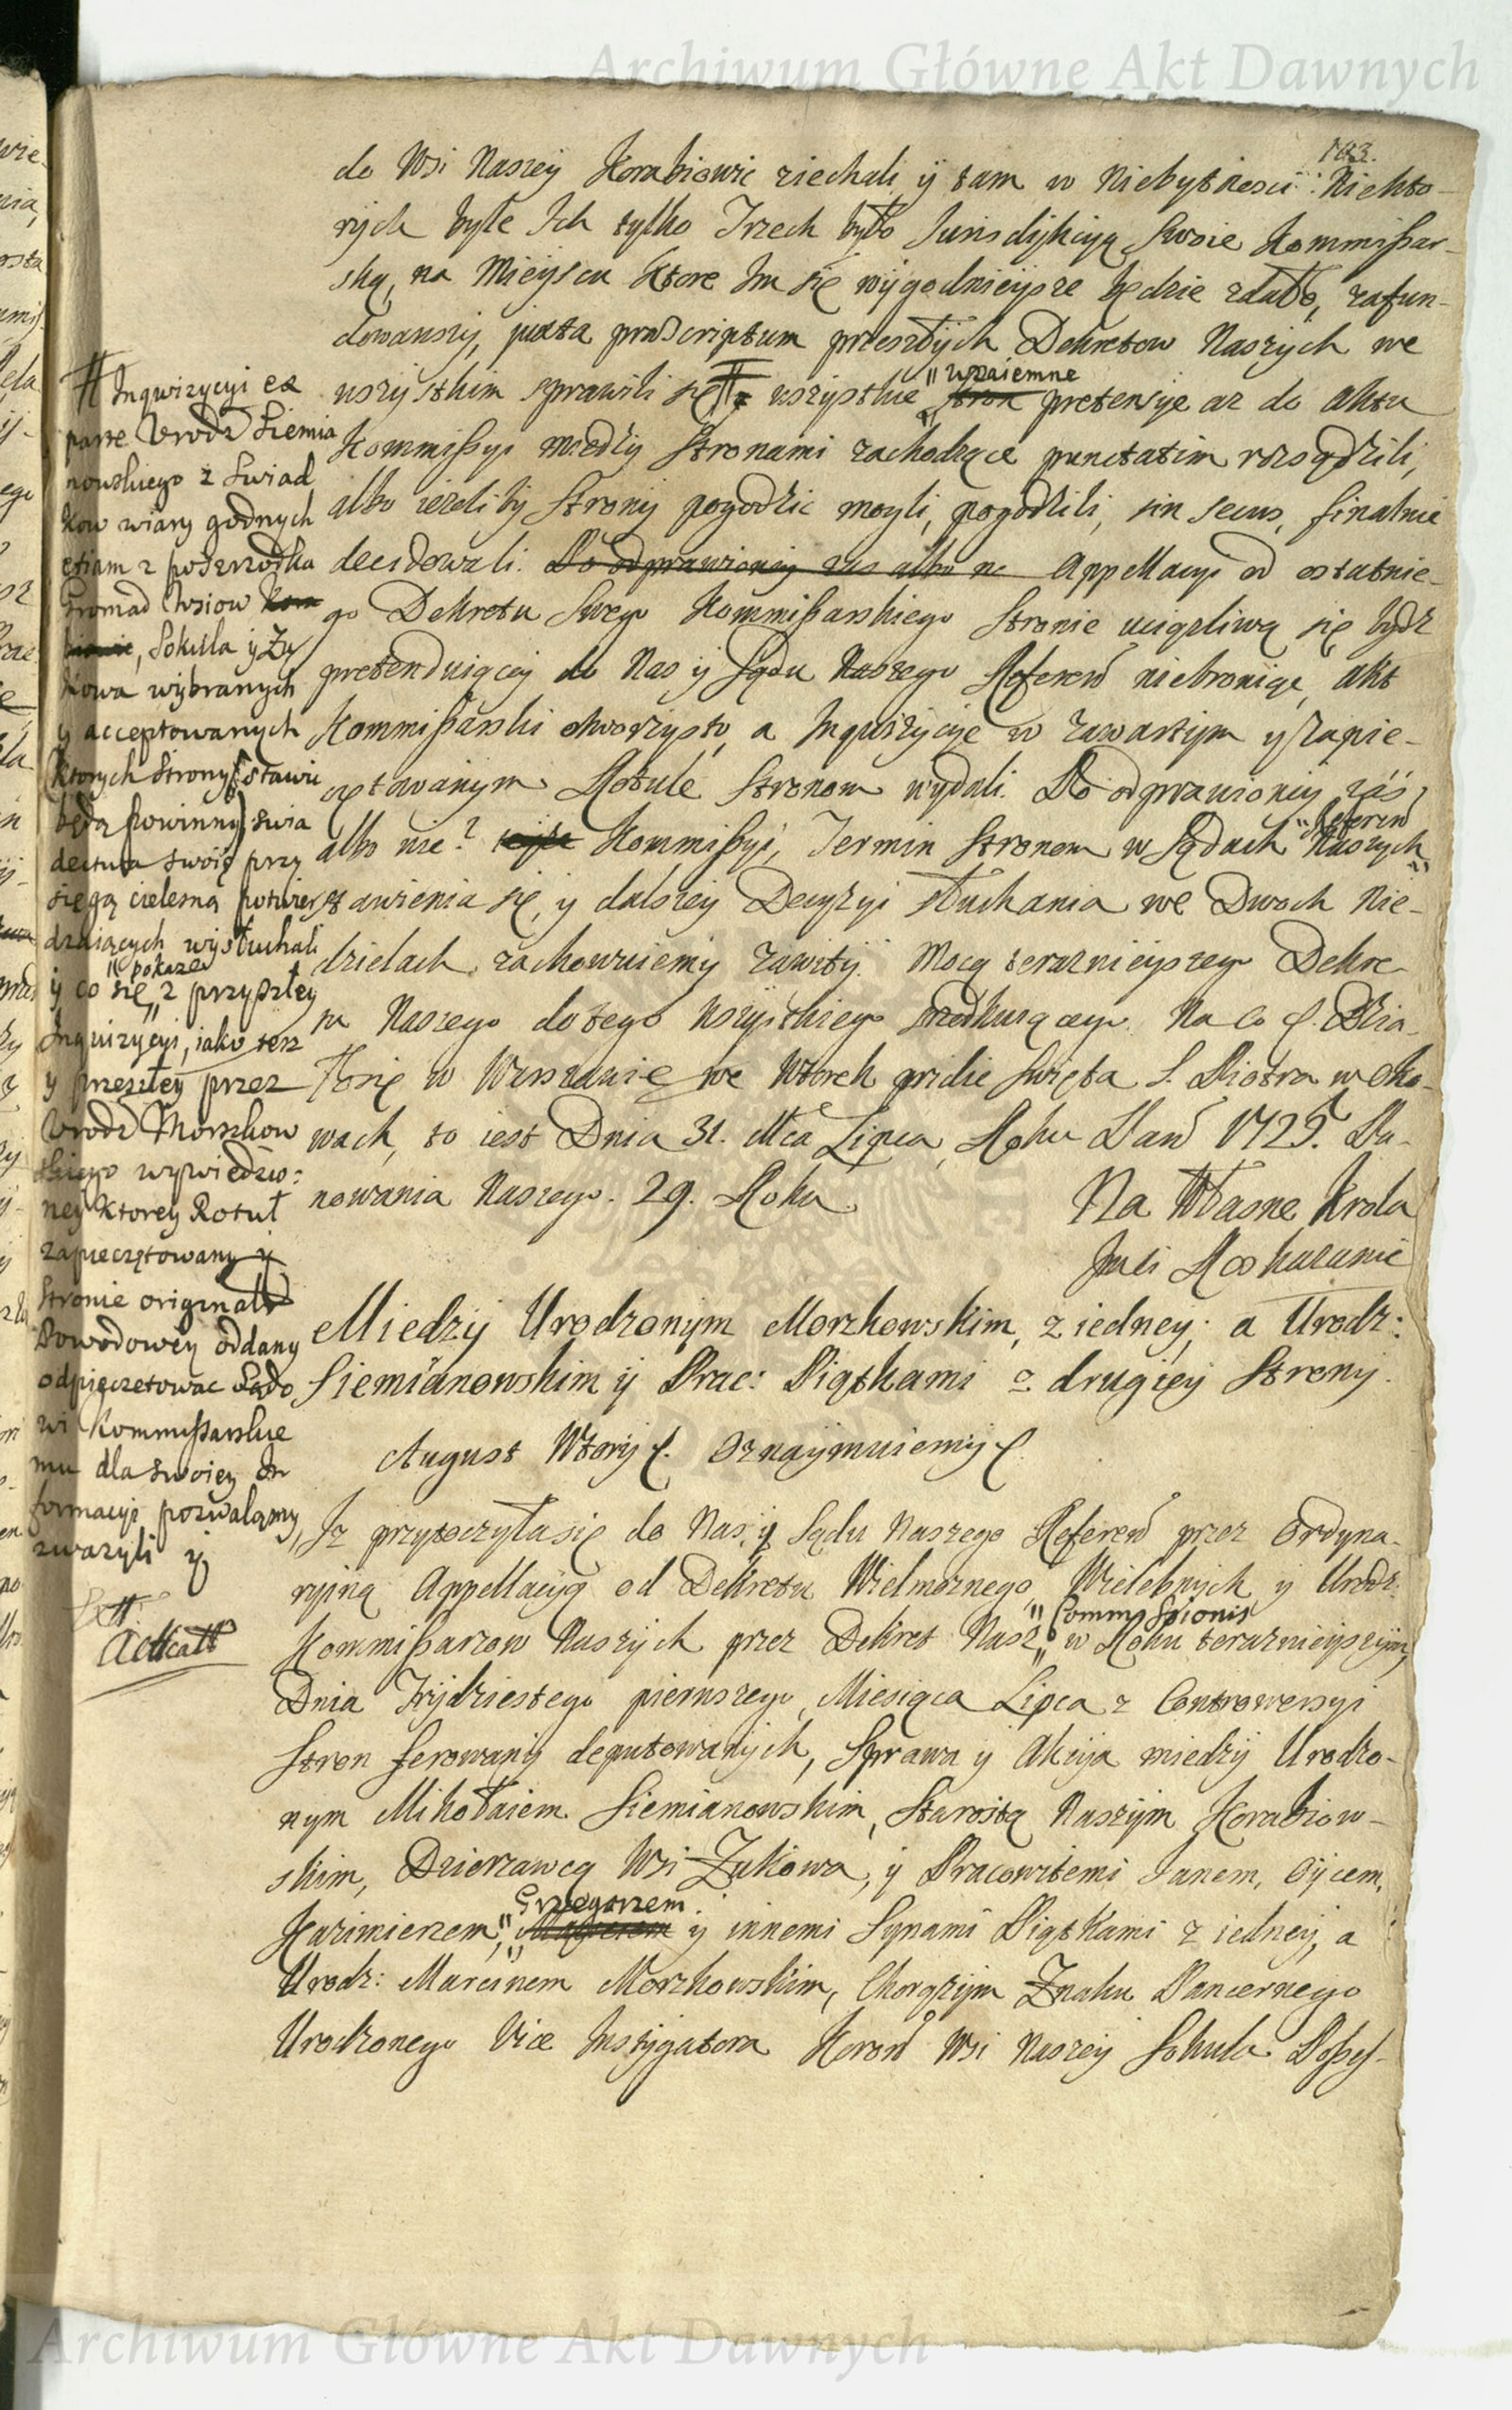 Archiwum Główne Akt Dawnych
103.
do Wsi Naszey Korabiowic ziechali y tam w Niebytnosci Niekto-
rych byle Ich tylko Trzech było Jurisdykcyą Swoie Kommissar-
ską, na Mieyscu Ktore Im się wygodnieysze będzie zdało, zafun-
dowawszy, juxta praescriptum przeszłych Dekretow Naszych we
wszystkim sprawili się # wszystkie " wzaiemne " stron pretensye az do aktu
Kommissyi między Stronami zachodzące punctatim rozsądzili,
albo ieżeliby Strony pogodzic mogli, pogodzili, sin secus, finalnie
decidowali. Po odprawioney zas albo nie Appellacyi od ostatnie-
go Dekretu Swego Kommissarskiego Stronie uciązliwą się bydz
pretenduiącey do Nas y Sądu Naszego Referen niebroniąc, akt
Kommissarski otworzysty, a Inquizycye w zawartym y zapie-
czętowanym Rotule Stronom wydali. Po odprawioney záś,
albo nie? Kommissyi, Termin Stronom w Sądach " Referen " Naszych
stawienia się, y dalszey Decyzyi słuchania we Dwoch Nie-
dzielach zachowuiemy zawity. Mocą terazniejszego Dekre-
tu Naszego do tego wszystkiego srzodkuiącego. Na co &. Dzia-
ło się w Warszawie we Wtorek pridie Swięta S. Piotra w Oko-
wach, to iest Dnia 31. Mca Lipca, Roku Pań 1725. Pa-
nowania Naszego. 29. Roku.
Na Własne Krola
Jmci Roskazanie
# Inqwizycyi ex
parte Urodz Siemia
nowskiego z Swiad
kow wiary godnych
etiam z posrzodka
Gromad Wsiow
, Sokula y Zu
kowa wybranych
y acceptowanych
Ktorych Strony (stawic
będą powinny) swia
dectwa swoie przy
sięgą cielesną potwier
dzaiących wysłuchali
y co się " pokaze " z przyszłey
Inquizycyi, iako tesz
y przeszłey przez
Urodz Morzkow
skiego wywiedzio:
ney Ktorey Rotuł
zapieczętowany y
Stronie originald
Powodowey oddany
odpieczetowac Sądo
wi Kommissarskie
mu dla swoiey In
formacyi pozwalamy,
zwazyli y
Miedzy Urodzonym Morzkowskim, z iedney; a Urodz:
Siemianowskim y Prac: Piątkami z drugiey Strony.
August Wtory &. Oznaymuiemy &.
Iz przytoczyła się do Nas, y Sądu Naszego Referen przez Ordyna-
ryiną Appellacyą od Dekretu Wielmoznego, Wielebnych y Urodz:
Kommissarzow Naszych przez Dekret Nasz " Commissionis " w Roku terazniejszym,
Dnia Trzydziestego pierwszego, Miesiąca Lipca z Controwersyi
Stron ferowany deputowanych, Sprawa y Akcya miedzy Urodzo-
nym Mikołaiem Siemianowskim, Starostą Naszym Korabiow-
skim, Dzierzawcą Wsi Zukowa, y Pracowitemi Janem, Oycem,
Kazimierzem, " Grzegorzem " y innemi Synami Piątkami z iedney, a
Urodz: Marcinem Morzkowskim, Chorązym Znaku Pancernego
Urodzonego Vice Instygatora Koron Wsi Naszey Sokula Posses-
Archiwum Główne Akt Dawnych